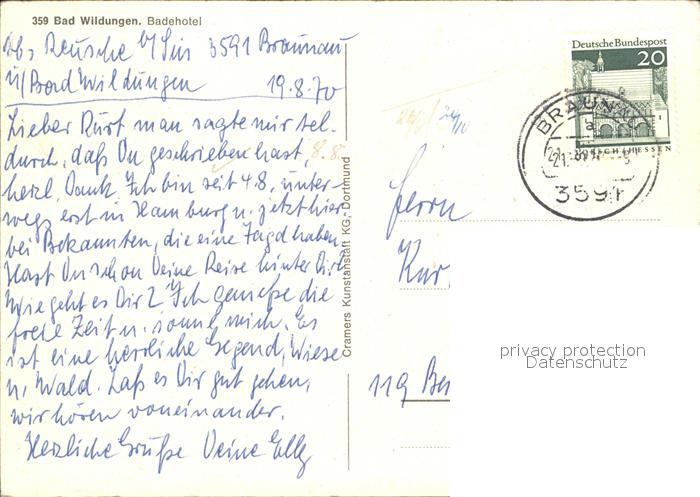 359 Bad Wildungen. Badehotel
Reusche b/ 3591 Braunau
ü/Bad Wildungen 19.8.70
Lieber Kurt man sagte mir tel.
durch, daß Du geschrieben hast, 8.8.
herzl. Dank. Ich bin seit 4.8. unter-
wegs erst in Hamburg u. jetzt hier
bei Bekannten, die eine Jagd haben.
Hast Du schon Deine Reise hinter Dir
Wie geht es Dir? Ich genieße die
freie Zeit u. sonne mich. Es
ist eine herrliche Gegend, Wiese
u. Wald. Laß es Dir gut gehen,
wir hören voneinander.
Herzliche Grüße Deine Elly
Cramers Kunstanstalt KG, Dortmund
Deutsche Bundespost
20
LORSCH/HESSEN
BRAUNAU
a
3591
Herrn
Kur
119 Ber
privacy protection
Datenschutz